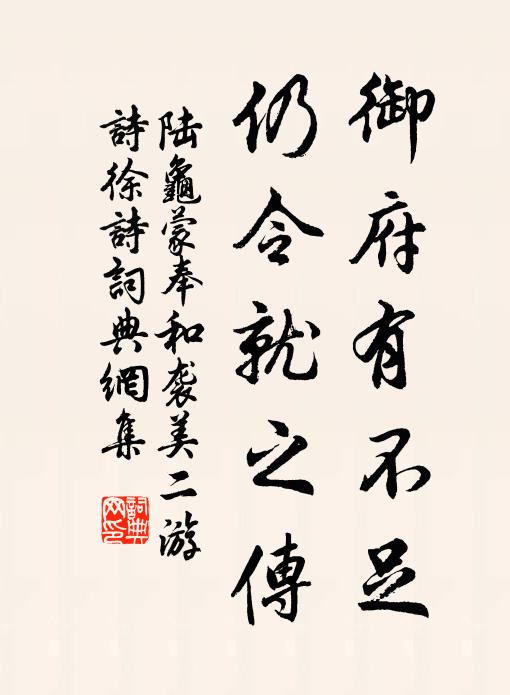 御府有不足
仍令就之傳
陸龜蒙奉和袭美二游
詩徐詩詞典網集
詞典
网印